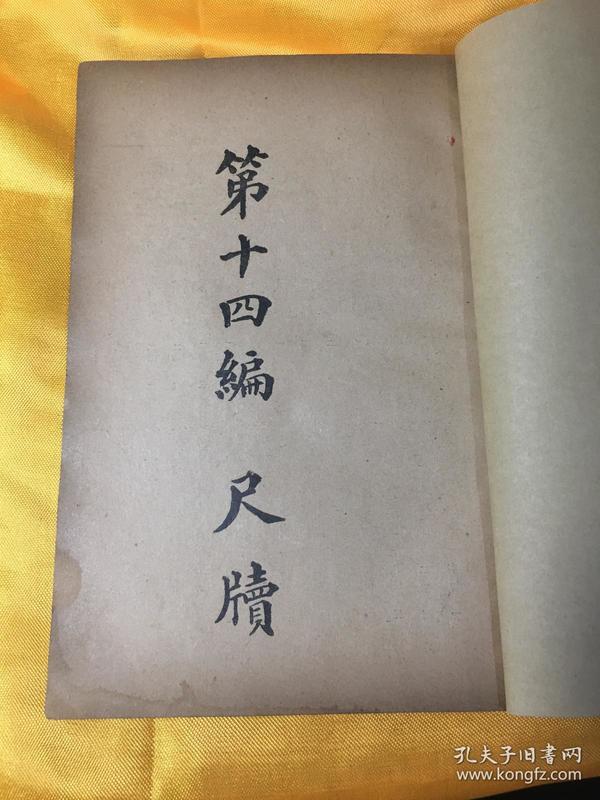 第十四編 尺牘
孔夫子旧書网
www.kongfz.com